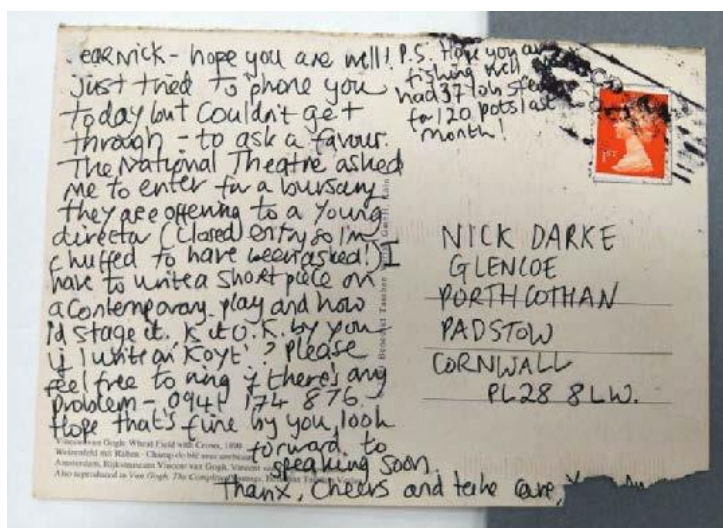 earNick - hope you are well!
just tried to phone you
today but couldn't get
through - to ask a favour.
The National Theatre asked
me to enter for a bursary
they are offering to a young
director (closed entry so I'm
chuffed to have been asked!) I
have to write a short piece on
a contemporary play and how
I'd stage it. Is it O.K. by you
if I write on 'Koyt'? Please
feel free to ring if there's any
problem - 0941 174 876.
Hope that's fine by you, look
forward to
speaking soon.
Thanx, Cheers and take care,
P.S. Hope you are
fishing well
had 37
for 120 pots last
month!
1ST
NICK DARKE
GLENCOE
PORTHCOTHAN
PADSTOW
CORNWALL
PL28 8LW.
Vincent van Gogh: Wheat Field with Crows, 1890
Weizenfeld mit Raben · Champ de blé aux corbeaux
Amsterdam, Rijksmuseum Vincent van Gogh, Vincent
Also reproduced in Van Gogh. The Complete Paintings, Benedikt Taschen Verlag
Benedikt Taschen Verlag GmbH, Köln